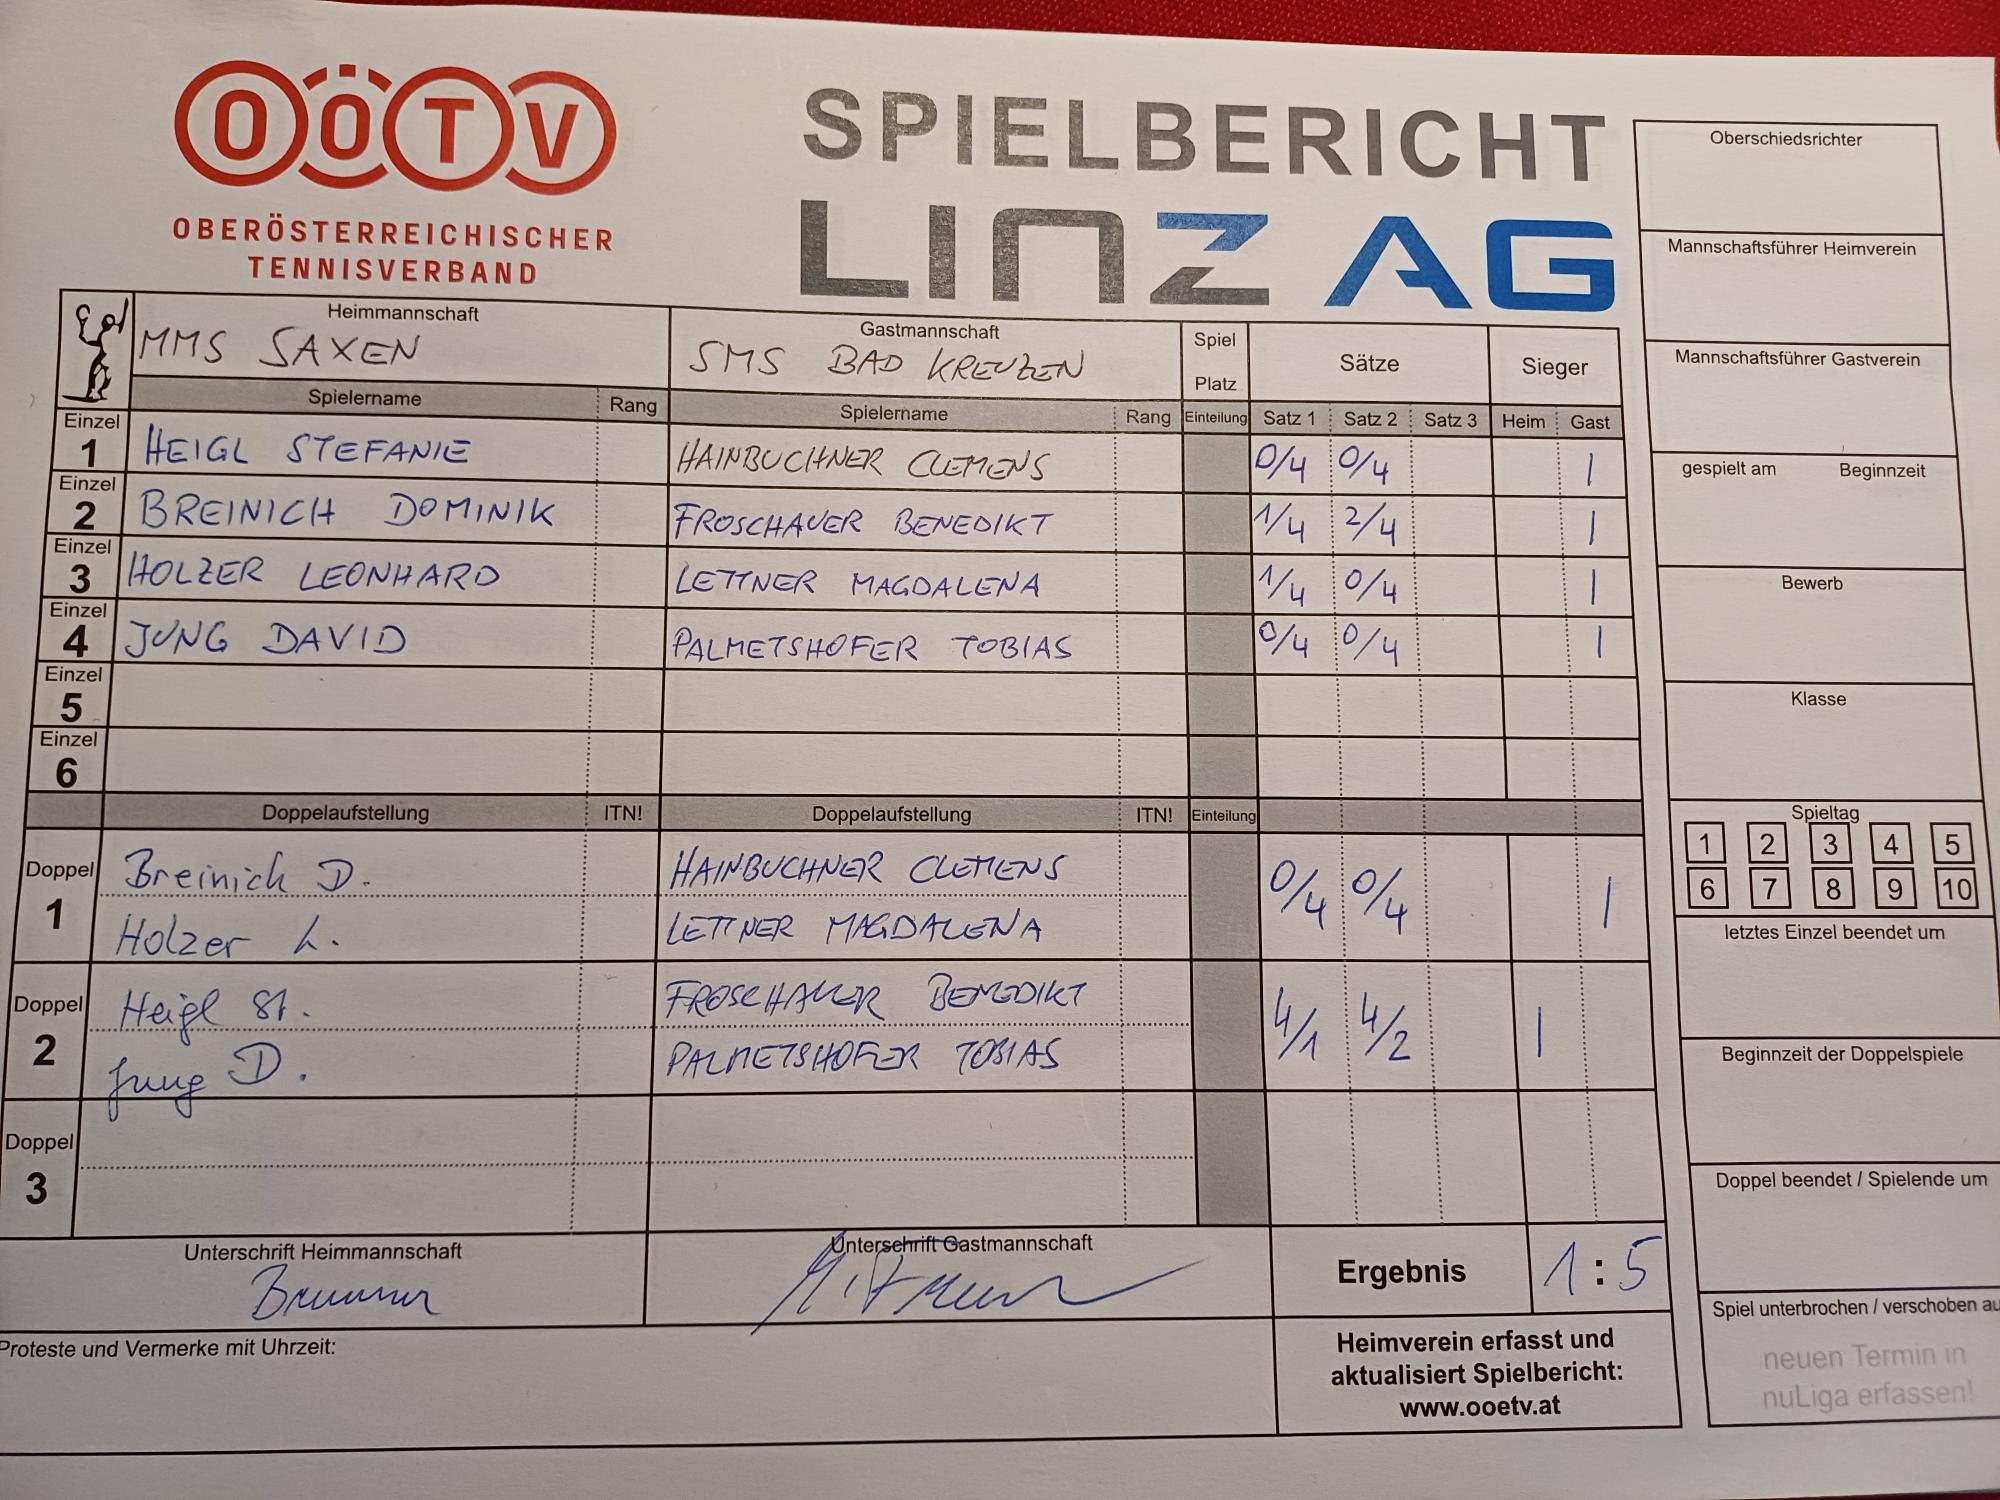 OÖTV
OBERÖSTERREICHISCHER
TENNISVERBAND
SPIELBERICHT
LINZ AG
Oberschiedsrichter
Mannschaftsführer Heimverein
Mannschaftsführer Gastverein
gespielt am Beginnzeit
Bewerb
Klasse
Spieltag
1 2 3 4 5
6 7 8 9 10
letztes Einzel beendet um
Beginnzeit der Doppelspiele
Doppel beendet / Spielende um
Spiel unterbrochen / verschoben au
neuen Termin in
nuLiga erfassen!
Heimmannschaft Gastmannschaft Spiel Platz Sätze Sieger
MMS SAXEN SMS BAD KREUZEN
Spielername Rang Spielername Rang Einteilung Satz 1 Satz 2 Satz 3 Heim Gast
Einzel 1 HEIGL STEFANIE HAINBUCHNER CLEMENS 0/4 0/4 1
Einzel 2 BREINICH DOMINIK FROSCHAUER BENEDIKT 1/4 2/4 1
Einzel 3 HOLZER LEONHARD LETTNER MAGDALENA 1/4 0/4 1
Einzel 4 JUNG DAVID PALMETSHOFER TOBIAS 0/4 0/4 1
Einzel 5
Einzel 6
Doppelaufstellung ITN! Doppelaufstellung ITN! Einteilung
Doppel 1 Breinich D. HAINBUCHNER CLEMENS 0/4 0/4 1
Holzer L. LETTNER MAGDALENA
Doppel 2 Heigl St. FROSCHAUER BENEDIKT 4/1 4/2 1
Jung D. PALMETSHOFER TOBIAS
Doppel 3
Unterschrift Heimmannschaft Unterschrift Gastmannschaft Ergebnis 1 : 5
Proteste und Vermerke mit Uhrzeit:
Heimverein erfasst und
aktualisiert Spielbericht:
www.ooetv.at